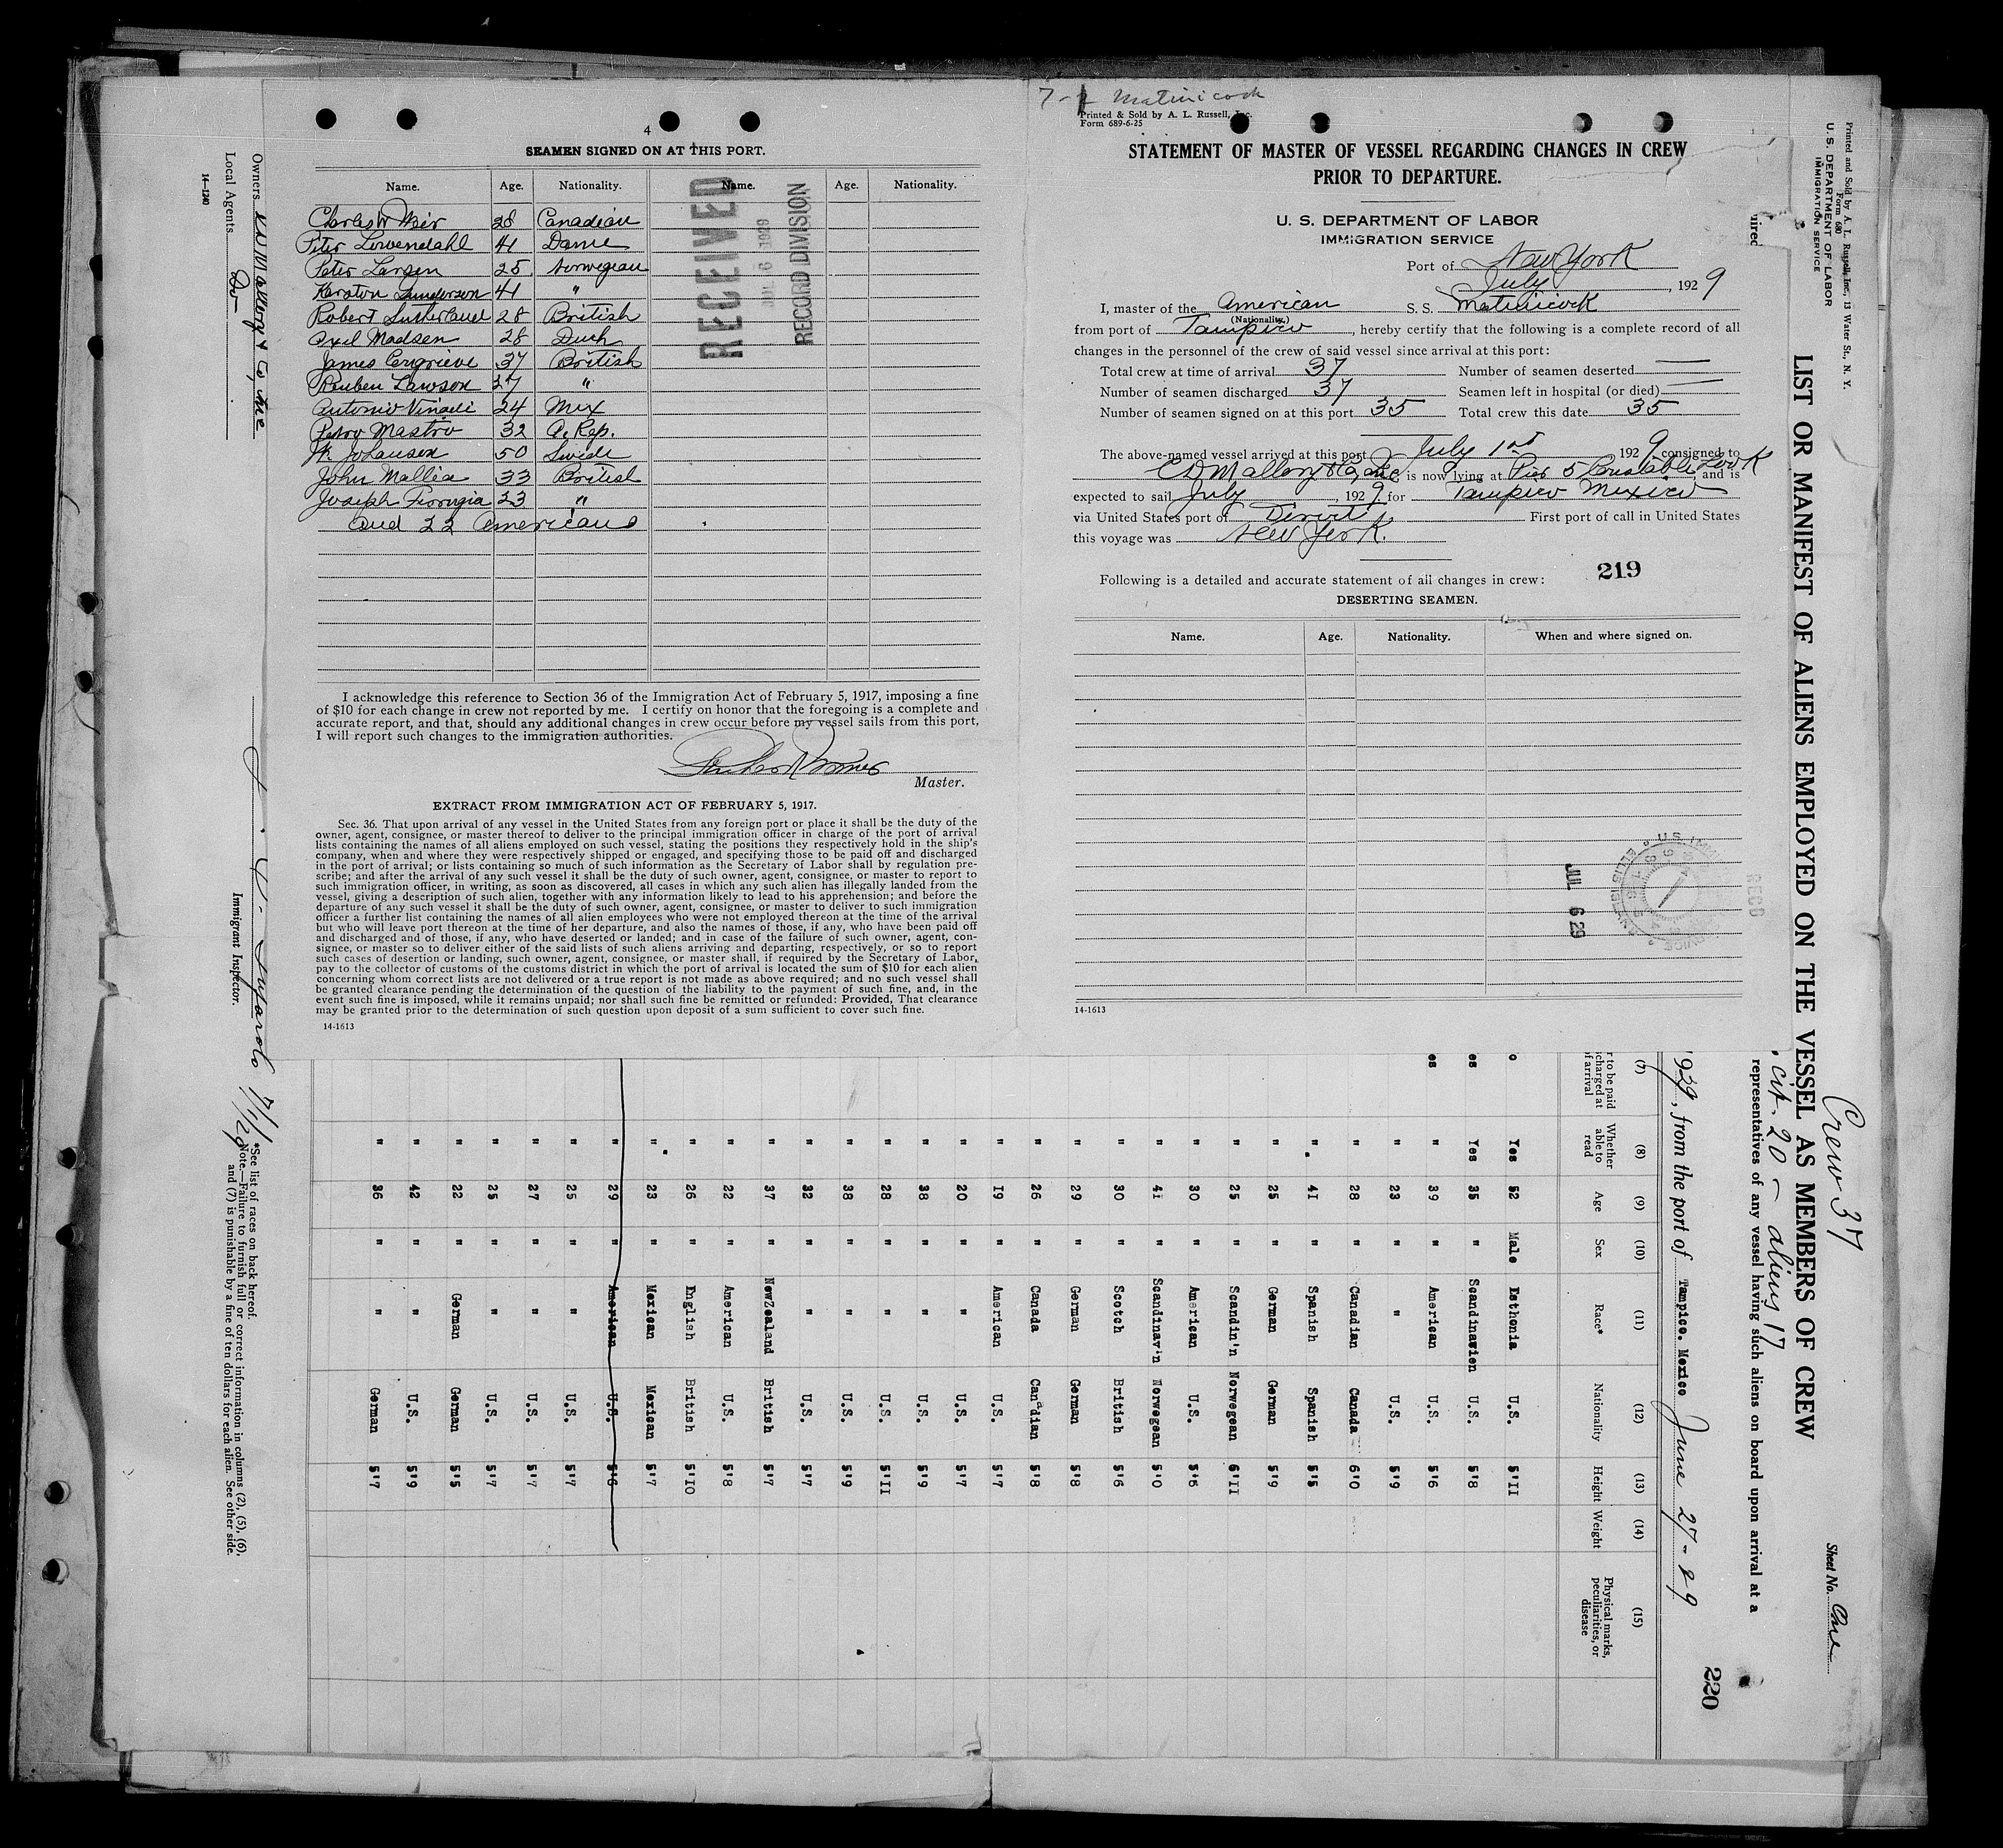 4
SEAMEN SIGNED ON AT THIS PORT.
Name. Age. Nationality. Name. Age. Nationality.
Charles W Meir 28 Canadian
Peter Lowendahl 41 Dane
Peter Larsen 25 Norwegian
Karston Gunderson 41 "
Robert Sutherland 28 British
Axel Madsen 28
James 37 British
Reuben Lawson 27 "
Antonio 24 Mex
Mastro 32 A. Rep.
Johansen 50 Swede
John Mallia 33 British
Joseph 23 "
and 22 Americans
RECEIVED
JUL 6 1929
RECORD DIVISION
I acknowledge this reference to Section 36 of the Immigration Act of February 5, 1917, imposing a fine
of $10 for each change in crew not reported by me. I certify on honor that the foregoing is a complete and
accurate report, and that, should any additional changes in crew occur before my vessel sails from this port,
I will report such changes to the immigration authorities.
Master.
EXTRACT FROM IMMIGRATION ACT OF FEBRUARY 5, 1917.
Sec. 36. That upon arrival of any vessel in the United States from any foreign port or place it shall be the duty of the
owner, agent, consignee, or master thereof to deliver to the principal immigration officer in charge of the port of arrival
lists containing the names of all aliens employed on such vessel, stating the positions they respectively hold in the ship's
company, when and where they were respectively shipped or engaged, and specifying those to be paid off and discharged
in the port of arrival; or lists containing so much of such information as the Secretary of Labor shall by regulation pre-
scribe; and after the arrival of any such vessel it shall be the duty of such owner, agent, consignee, or master to report to
such immigration officer, in writing, as soon as discovered, all cases in which any such alien has illegally landed from the
vessel, giving a description of such alien, together with any information likely to lead to his apprehension; and before the
departure of any such vessel it shall be the duty of such owner, agent, consignee, or master to deliver to such immigration
officer a further list containing the names of all alien employees who were not employed thereon at the time of the arrival
but who will leave port thereon at the time of her departure, and also the names of those, if any, who have been paid off
and discharged and of those, if any, who have deserted or landed; and in case of the failure of such owner, agent, con-
signee, or master so to deliver either of the said lists of such aliens arriving and departing, respectively, or so to report
such cases of desertion or landing, such owner, agent, consignee, or master shall, if required by the Secretary of Labor,
pay to the collector of customs of the customs district in which the port of arrival is located the sum of $10 for each alien
concerning whom correct lists are not delivered or a true report is not made as above required; and no such vessel shall
be granted clearance pending the determination of the question of the liability to the payment of such fine, and, in the
event such fine is imposed, while it remains unpaid; nor shall such fine be remitted or refunded: Provided, That clearance
may be granted prior to the determination of such question upon deposit of a sum sufficient to cover such fine.
14-1613
7- Matinicock
Printed & Sold by A. L. Russell, Inc.
Form 689-6-25
STATEMENT OF MASTER OF VESSEL REGARDING CHANGES IN CREW
PRIOR TO DEPARTURE.
U. S. DEPARTMENT OF LABOR
IMMIGRATION SERVICE
Port of New York
July, 1929
I, master of the American S. S. Matinicock
(Nationality.)
from port of Tampico, hereby certify that the following is a complete record of all
changes in the personnel of the crew of said vessel since arrival at this port:
Total crew at time of arrival 37 Number of seamen deserted
Number of seamen discharged 37 Seamen left in hospital (or died)
Number of seamen signed on at this port 35 Total crew this date 35
The above-named vessel arrived at this port July 1st 1929 consigned to
CD Mallory & Co Inc is now lying at Pier 5 Constable Hook, and is
expected to sail July, 1929 for Tampico Mexico
via United States port of Direct First port of call in United States
this voyage was New York.
219
Following is a detailed and accurate statement of all changes in crew:
DESERTING SEAMEN.
Name. Age. Nationality. When and where signed on.
JUL 6 29
RECD
14-1613
Printed and Sold by A. L. Russell, Inc., 13 Water St., N. Y.
Form 680
U. S. DEPARTMENT OF LABOR
IMMIGRATION SERVICE
Crew 37
cit. 20 - aliens 17
Sheet No. One
LIST OR MANIFEST OF ALIENS EMPLOYED ON THE VESSEL AS MEMBERS OF CREW
representatives of any vessel having such aliens on board upon arrival at a
220
1929, from the port of Tampico. Mexico June 27-29
(7) (8) (9) (10) (11) (12) (13) (14) (15)
Whether able to read Age Sex Race* Nationality Height Weight Physical marks, peculiarities, or disease
o Yes 52 Male Esthonia U.S. 5'11
es Yes 35 " Scandinavien U.S. 5'8
es " 39 " American U.S. 5'6
" 23 " " U.S. 5'9
" 28 " Canadian Canada 6'0
" 41 " Spanish Spanish 5'5
" 25 " German German 5'9
" 25 " Scandin'n Norwegean 6'11
" 30 " American U.S. 5'6
" 41 " Scandinav'n Norwegean 5'0
" 30 " Scotch British 5'6
" 29 " German German 5'8
" 26 " Canada Can'dian 5'8
" 19 " American U.S. 5'7
" 20 " " U.S. 5'7
" 38 " " U.S. 5'9
" 28 " " U.S. 5'11
" 38 " " U.S. 5'9
" 32 " " U.S. 5'7
" 37 " NewZealand British 5'7
" 22 " American U.S. 5'8
" 26 " English British 5'10
" 23 " Mexican Mexican 5'7
" 29 " American U.S. 5'6
" 25 " " U.S. 5'7
" 27 " " U.S. 5'7
" 25 " " U.S. 5'7
" 22 " German German 5'5
" 42 " " U.S. 5'9
" 36 " " German 5'7
Owners Mallory & Co Inc
Local Agents Do
14-1240
Immigrant Inspector.
7/1/29
*See list of races on back hereof.
Note.—Failure to furnish full or correct information in columns (2), (5), (6),
and (7) is punishable by a fine of ten dollars for each alien. See other side.